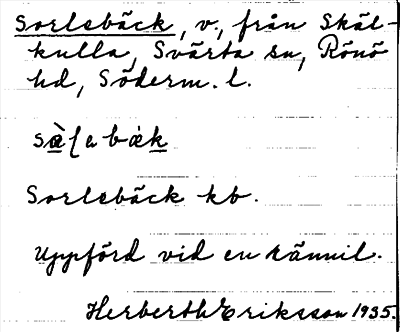 Sorlebäck, v., från Skäl-
kulla, Svärta sn, Rönö
hd, Söderm. l.
Sorlebäck kb.
Uppförd vid en kännil.
Herberth Eriksson 1935.